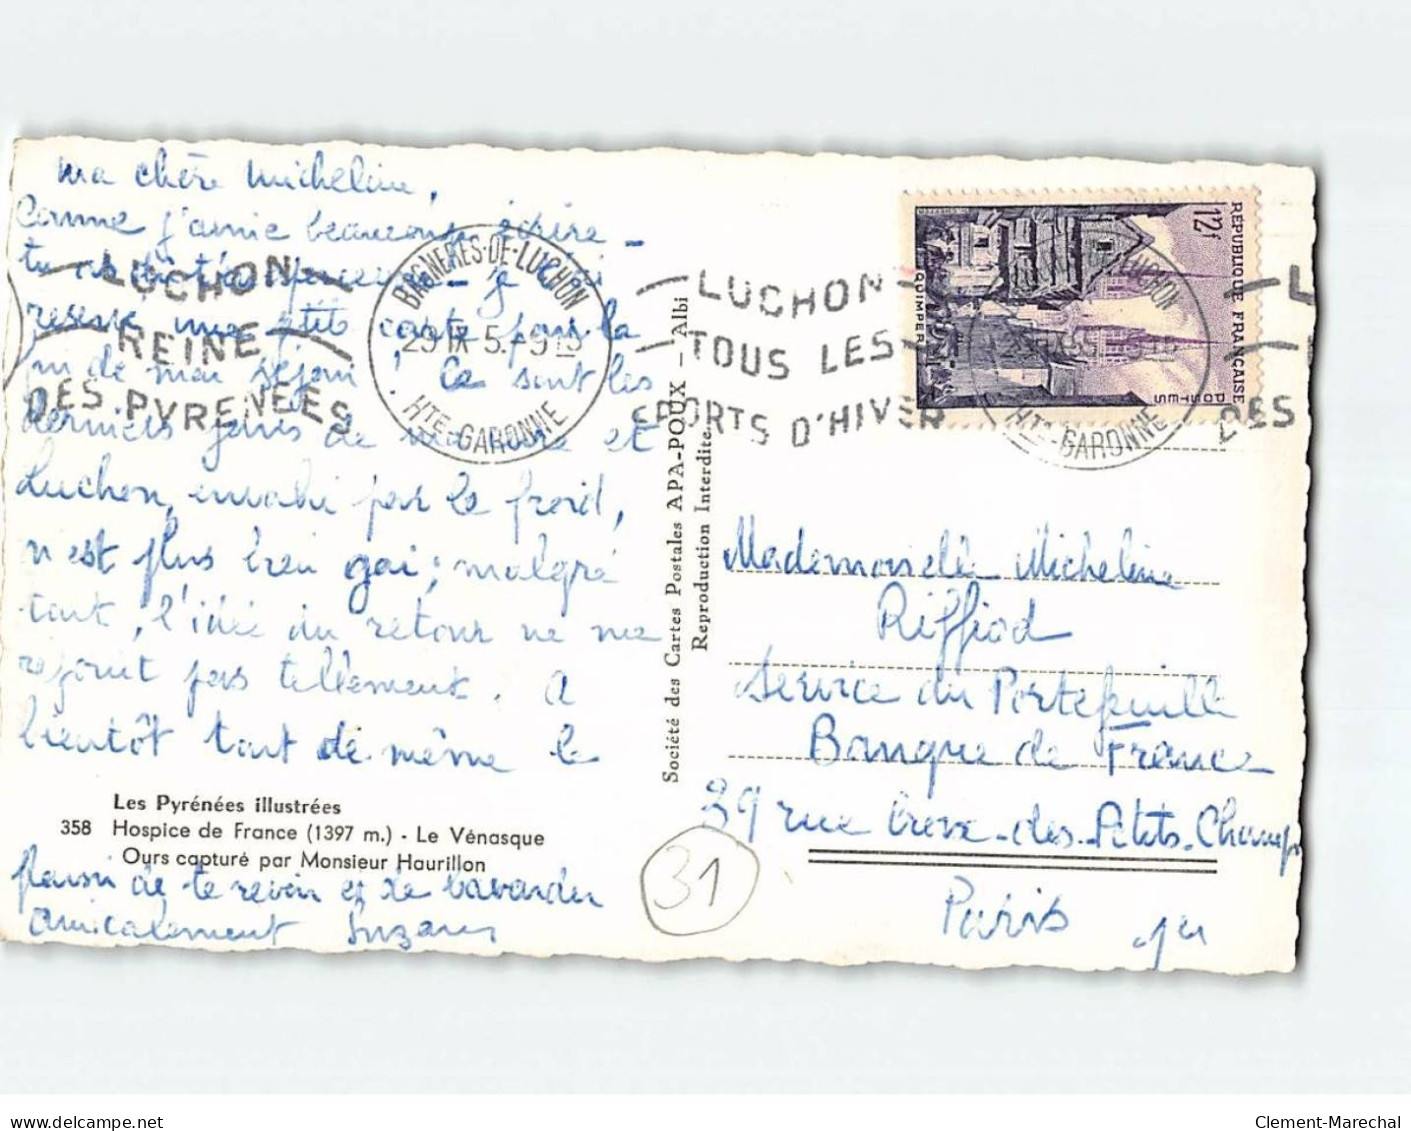 ma chère Micheline,
Comme j'aime beaucoup écrire -
je t'ai
réservé ma ptite carte pour la
fin de mon séjour ! Ce sont les
derniers jours de et
Luchon, envahi par le froid,
n'est plus bien gai ; malgré
tout, l'idée du retour ne me
réjouit pas tellement. A
bientôt tout de même le
Les Pyrénées illustrées
358 Hospice de France (1397 m.) - Le Vénasque
Ours capturé par Monsieur Haurillon
plaisir de te revoir et de bavarder
amicalement Suzanne
LUCHON
REINE
DES PYRENEES
BAGNERES-DE-LUCHON
29 IX 5. -9 15
HTE-GARONNE
LUCHON
TOUS LES
SPORTS D'HIVER
Société des Cartes Postales APA-POUX - Albi
Reproduction Interdite.
12f
REPUBLIQUE FRANÇAISE
POSTES
QUIMPER
LUCHON
HTE-GARONNE
L
DES
Mademoiselle Micheline
Riffiod
Service du Portefeuille
Banque de France
39 rue Croix-des-Petits-Champs
Paris 1er
31
delcampe.net
Clement-Marechal